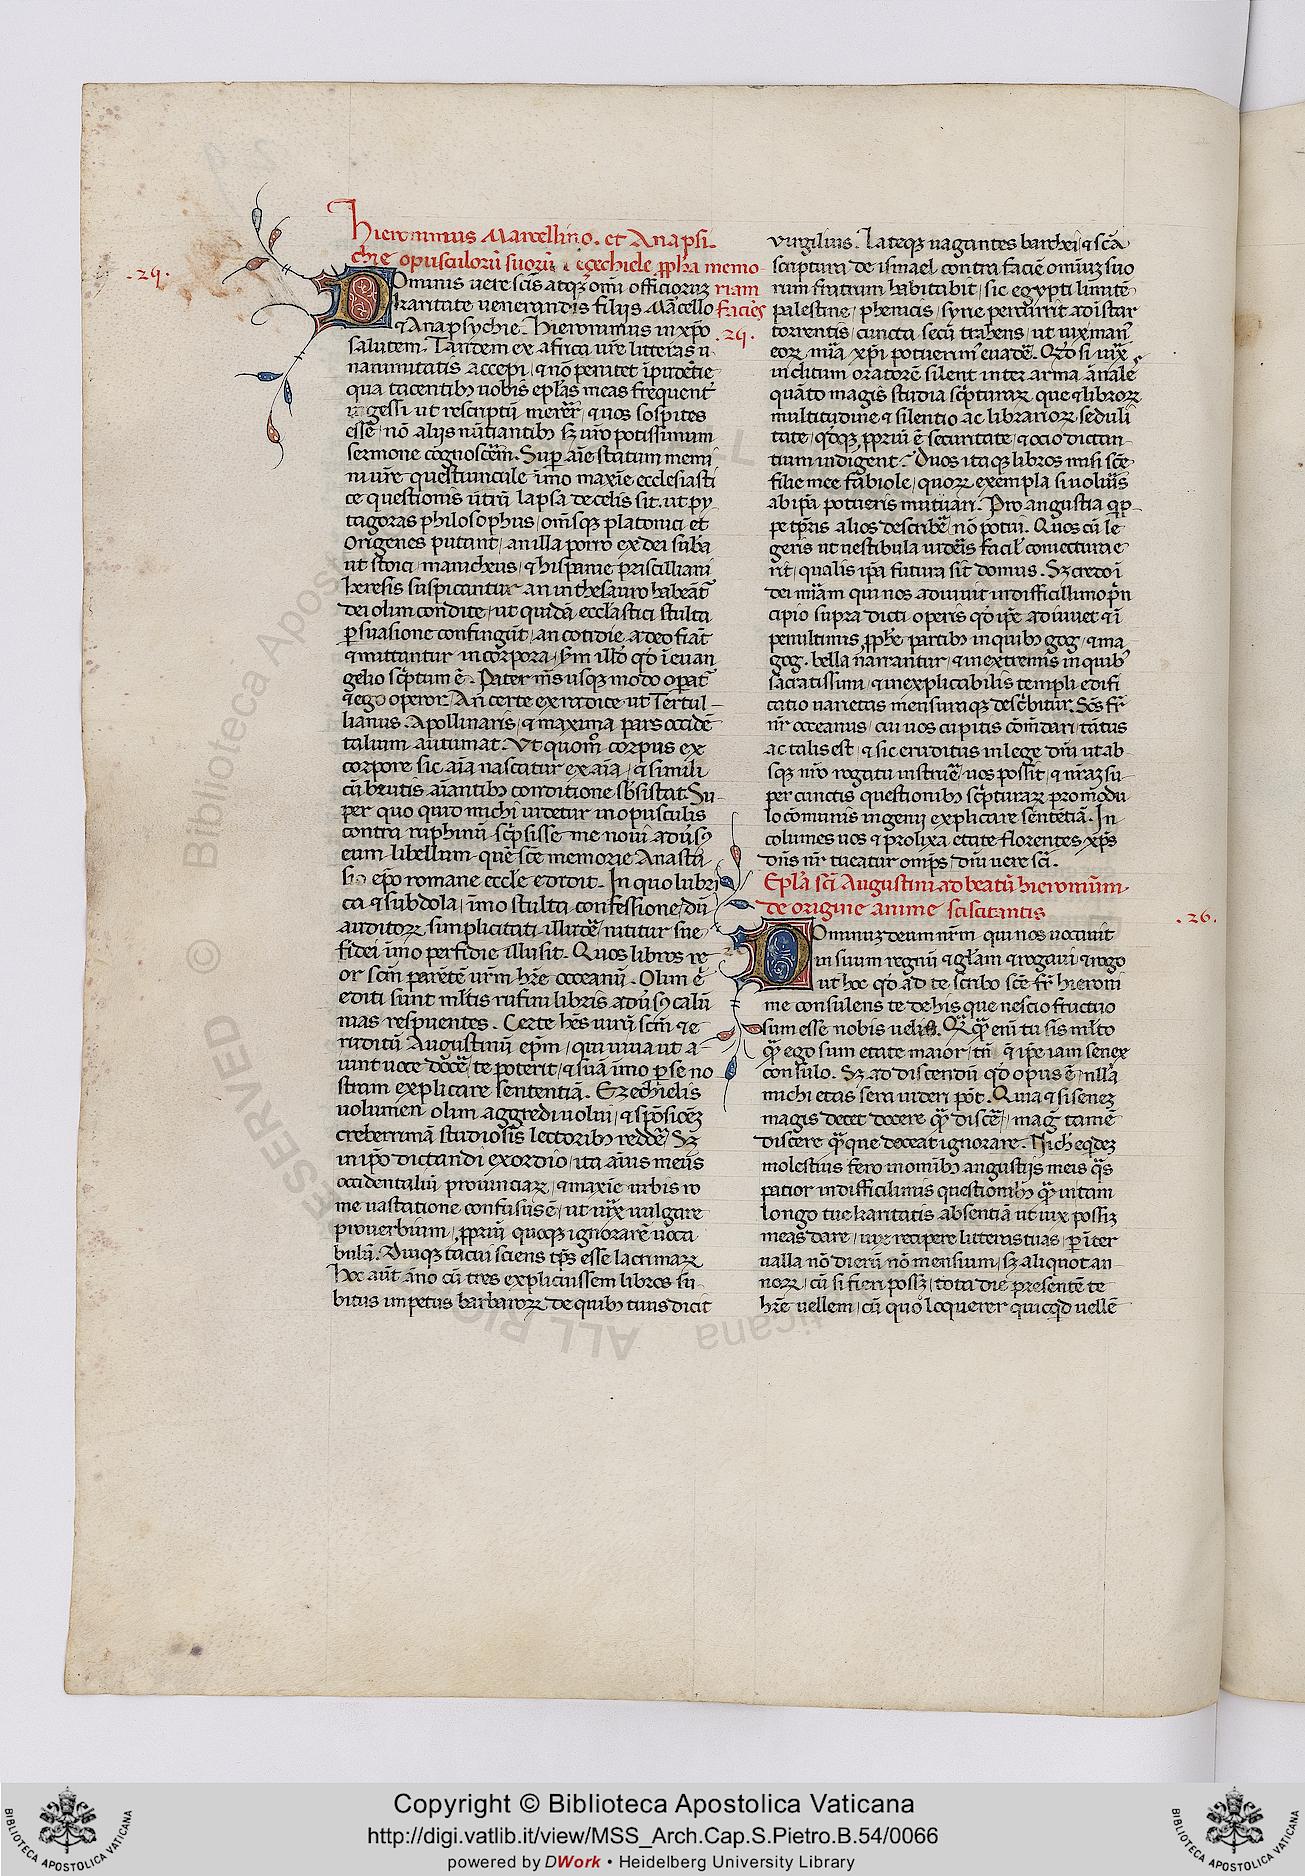 Hieronimus Marcellino. et Anapsi-
chie opusculorū suorū ezechiele ꝓpha memo-
.29.
Dominis uere scīs atqꝫ omī officioruꝫ riam
karitate venerandis filijs Marcello facies
⁊ Anapsychie. Hieronimus in xp̄o .29.
salutem. Tandem ex africa ur̄e litteras u-
nanimitatis accepi, ⁊ nō penitet īpudētie
qua tacentibꝫ uobis ep̄las meas frequent'
ingessi ut rescriptū mererer, ⁊ uos sospites
esse, nō alijs nūtiantibꝫ sꝫ ur̄o potissimum
sermone cognoscerem. Super aīe statum memi
ni ur̄e questiuncule īmo maxīe ecclesiasti
ce questionis utrū lapsa de celis sit. ut py
tagoras philosophus, om̄sqꝫ platonici et
Origenes putant, an illa porro ex dei sub̄a
ut stoici, manicheus, ⁊ hispanie priscilliani
heresis suspicantur an in thesauro habeant'
dei olim condite, ut quidā ecclastici stulta
ꝑsuasione confingūt, an cotidie a deo fiāt
⁊ mittantur in corpora, s̄m illd' qd' ī euan
gelio sc̄ptum ē. Pater m̄s usqꝫ modo operat'
⁊ ego operor. An certe ex traduce ut Tertul-
lianus. Apollinaris, ⁊ maxima pars occidē
talium autumat. Ut quom̊ corpus ex
corpore sic aīa nascatur ex aīa, ⁊ simili
cū brutis aīantibꝫ conditione sb̄sistat. Su-
per quo quid michi uidetur in opusculis
contra ruphinū sc̄psisse me noui aduersꝰ
eum libellum quē sc̄e memorie Anasta
sio ep̄o romane eccle edidit. In quo lubri
ca ⁊ subdola, īmo stulta confessione, dū
auditorꝝ simplicitati illudere, nititur sue
fidei īmo perfidie illusit. Quos libros re
or sc̄m parētē ur̄m hr̄e oceanū. Olim .n.
editi sunt ml̄tis rufini libris aduersꝰ calū
nias respuentes. Certe hēs uirū sc̄m ⁊ e
ruditū Augustinū ep̄m, qui uiua ut a-
iunt uoce docere, te poterit, ⁊ suā īmo ꝑ se no
stram explicare sententiā. Ezechielis
uolumen olim aggredi uolui, ⁊ spōsionē
creberrimā studiosis lectoribꝫ reddere, Sꝫ
in ip̄o dictandi exordio, ita aīus meus
occidentaliū prouinciarꝝ, ⁊ maxīe urbis ro
me uastatione confusus ē, ut iuxta uulgare
prouerbium, ꝓpriū quoqꝫ ignorarē uoca
bulū. Diuqꝫ tacui sciens tp̄s esse lacrimarꝝ
Hoc aūt āno cū tres explicuissem libros su-
bitus impetus barbarorꝝ de quibꝫ tuus dicit
virgilius. Lateqꝫ uagantes barchei, ⁊ sc̄a
scriptura de ismael contra faciē omīuꝫ suo
rum fratrum habitabit, sic egypti limitē
palestine, phenicis, syrie percurrit ad istar
torrentis, cuncta secū trahens, ut uix man'
eorꝝ mīa xp̄i potuerim' euadere. Qd' si iuxta
inclitum oratorē silent inter arma ⁊ nale
quāto magis studia sc̄pturarꝝ que ⁊ librorꝝ
multitudine ⁊ silentio ac librariorꝝ seduli
tate, qd'qꝫ ꝓpriū ē securitate, ⁊ ocio dictan-
tium indigent. Duos itaqꝫ libros misi sc̄e
filie mee fabiole, quorꝝ exempla si uolueris
ab ip̄a poteris mutuari. Pro angustia qip-
pe tp̄ris alios describere, nō potui. Quos cū le
geris ut uestibula uideris facil' coniectura e-
rit, qualis ip̄a futura sit domus. Sꝫ credo ī
dei mīam qui nos adiuuit in difficillimo prin
cipio supra dicti operis qd' ip̄e adiuuet ⁊ ī
penultimis ꝓphe partibꝫ in quibꝫ gog, ⁊ ma
gog. bella narrantur, ⁊ in extremis in quibꝫ
sacratissimi, ⁊ inexplicabilis templi edifi
catio uarietas mensuraqꝫ describitur. Sc̄s fr̄
nr̄ oceanus, cui uos cupitis com̄dari, tātus
ac talis est, ⁊ sic eruditus in lege dn̄i ut ab
sqꝫ nr̄o rogatu instruere, uos possit, ⁊ nr̄aꝫ su-
per cunctis questionibꝫ sc̄pturarꝝ pro modu
lo cōmunis ingenij explicare sententiā. In
columes uos ⁊ prolixa etate florentes, xp̄s
dn̄s nr̄ tueatur omp̄s, dn̄i uere sc̄i.
Epl̄a sc̄i Augustini ad beatū hieronimum
de origine anime sciscitantis
.26.
Dominuꝫ deum nr̄m qui nos uocauit
in suum regnū ⁊ gl̄am ⁊ rogaui ⁊ rogo
ut hoc qd' ad te scribo sc̄e fr̄ hieroni
me consulens te de his que nescio fructuo
sum esse nobis uelit. Qr̄ qꝫ enī tu sis ml̄to
qꝫ ego sum etate maior, tn̄ ⁊ ip̄e iam senex
consulo. Sꝫ ad discendū qd' opus ē, nll'a
michi etas sera uideri pōt. Quia ⁊ si senes
magis decet docere qꝫ discere, mag' tamē
discere qꝫ que doceat ignorare. Nich eqdeꝫ
molestius fero in omībꝫ angustijs meis qꝫs
patior in difficilimis questionibꝫ qꝫ in tam
longo tue karitatis absentiā ut uix possiꝫ
meas dare, uix recipere litteras tuas, ꝑ īter
ualla nō dierū nō mensium, sꝫ aliquot an-
norꝝ, cū si fieri posset, tota die presentē te
hr̄e uellem, cū quo loquerer quicqd uellē
Copyright © Biblioteca Apostolica Vaticana
http://digi.vatlib.it/view/MSS_Arch.Cap.S.Pietro.B.54/0066
powered by DWork • Heidelberg University Library